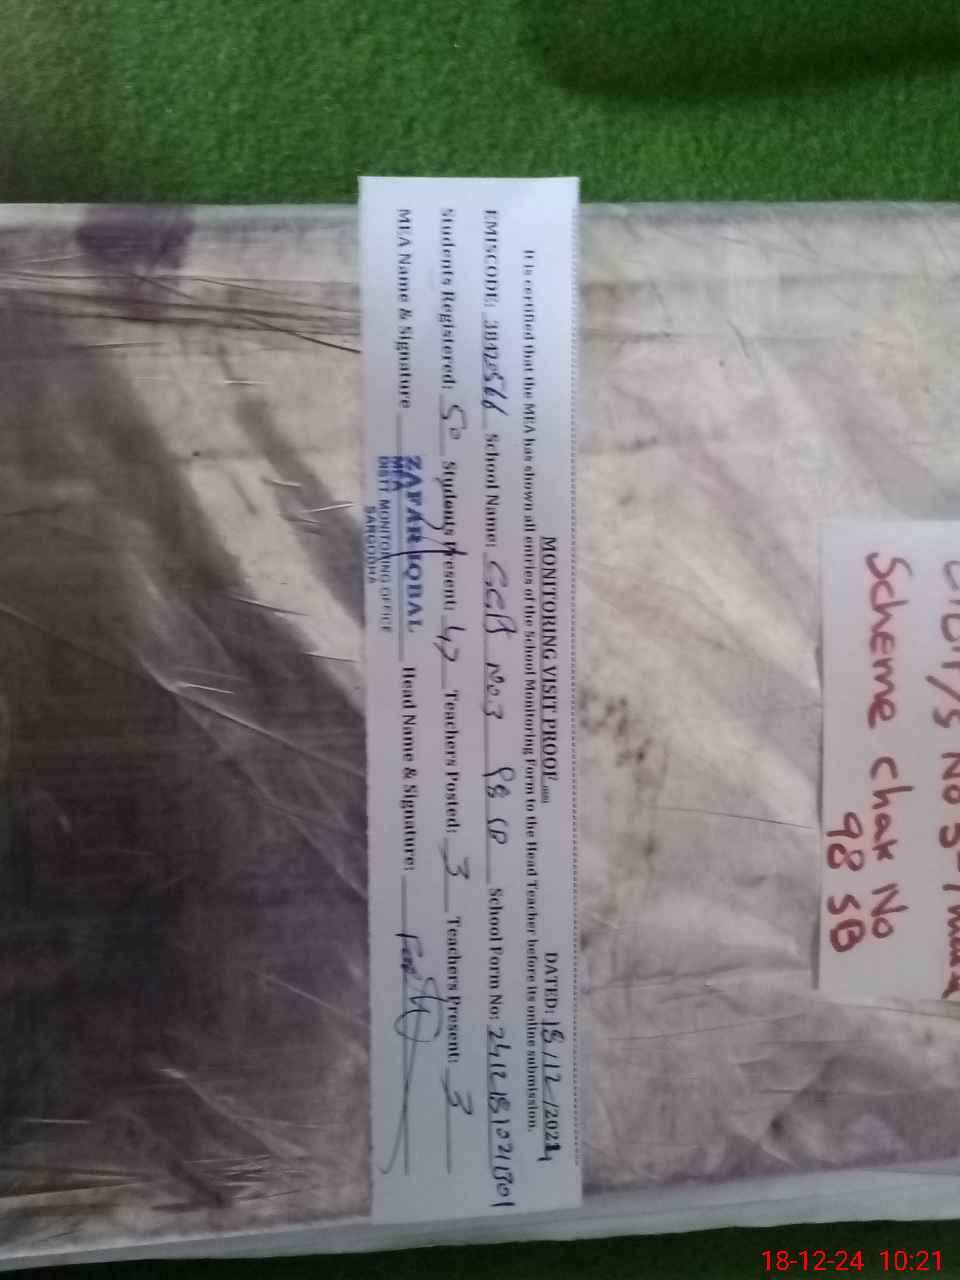 MONITORING VISIT PROOF DATED: 18/12/2024
It is certified that the MEA has shown all entries of the School Monitoring Form to the Head Teacher before its online submission.
EMISCODE: 38420566 School Name: No3 98 School Form No: 2412181021801
Students Registered: 50 Students Present: 47 Teachers Posted: 3 Teachers Present: 3
MEA Name & Signature Head Name & Signature:
ZAFAR IQBAL
MEA
DISTT. MONITORING OFFICE
SARGODHA
Scheme Chak No
98 SB
18-12-24 10:21